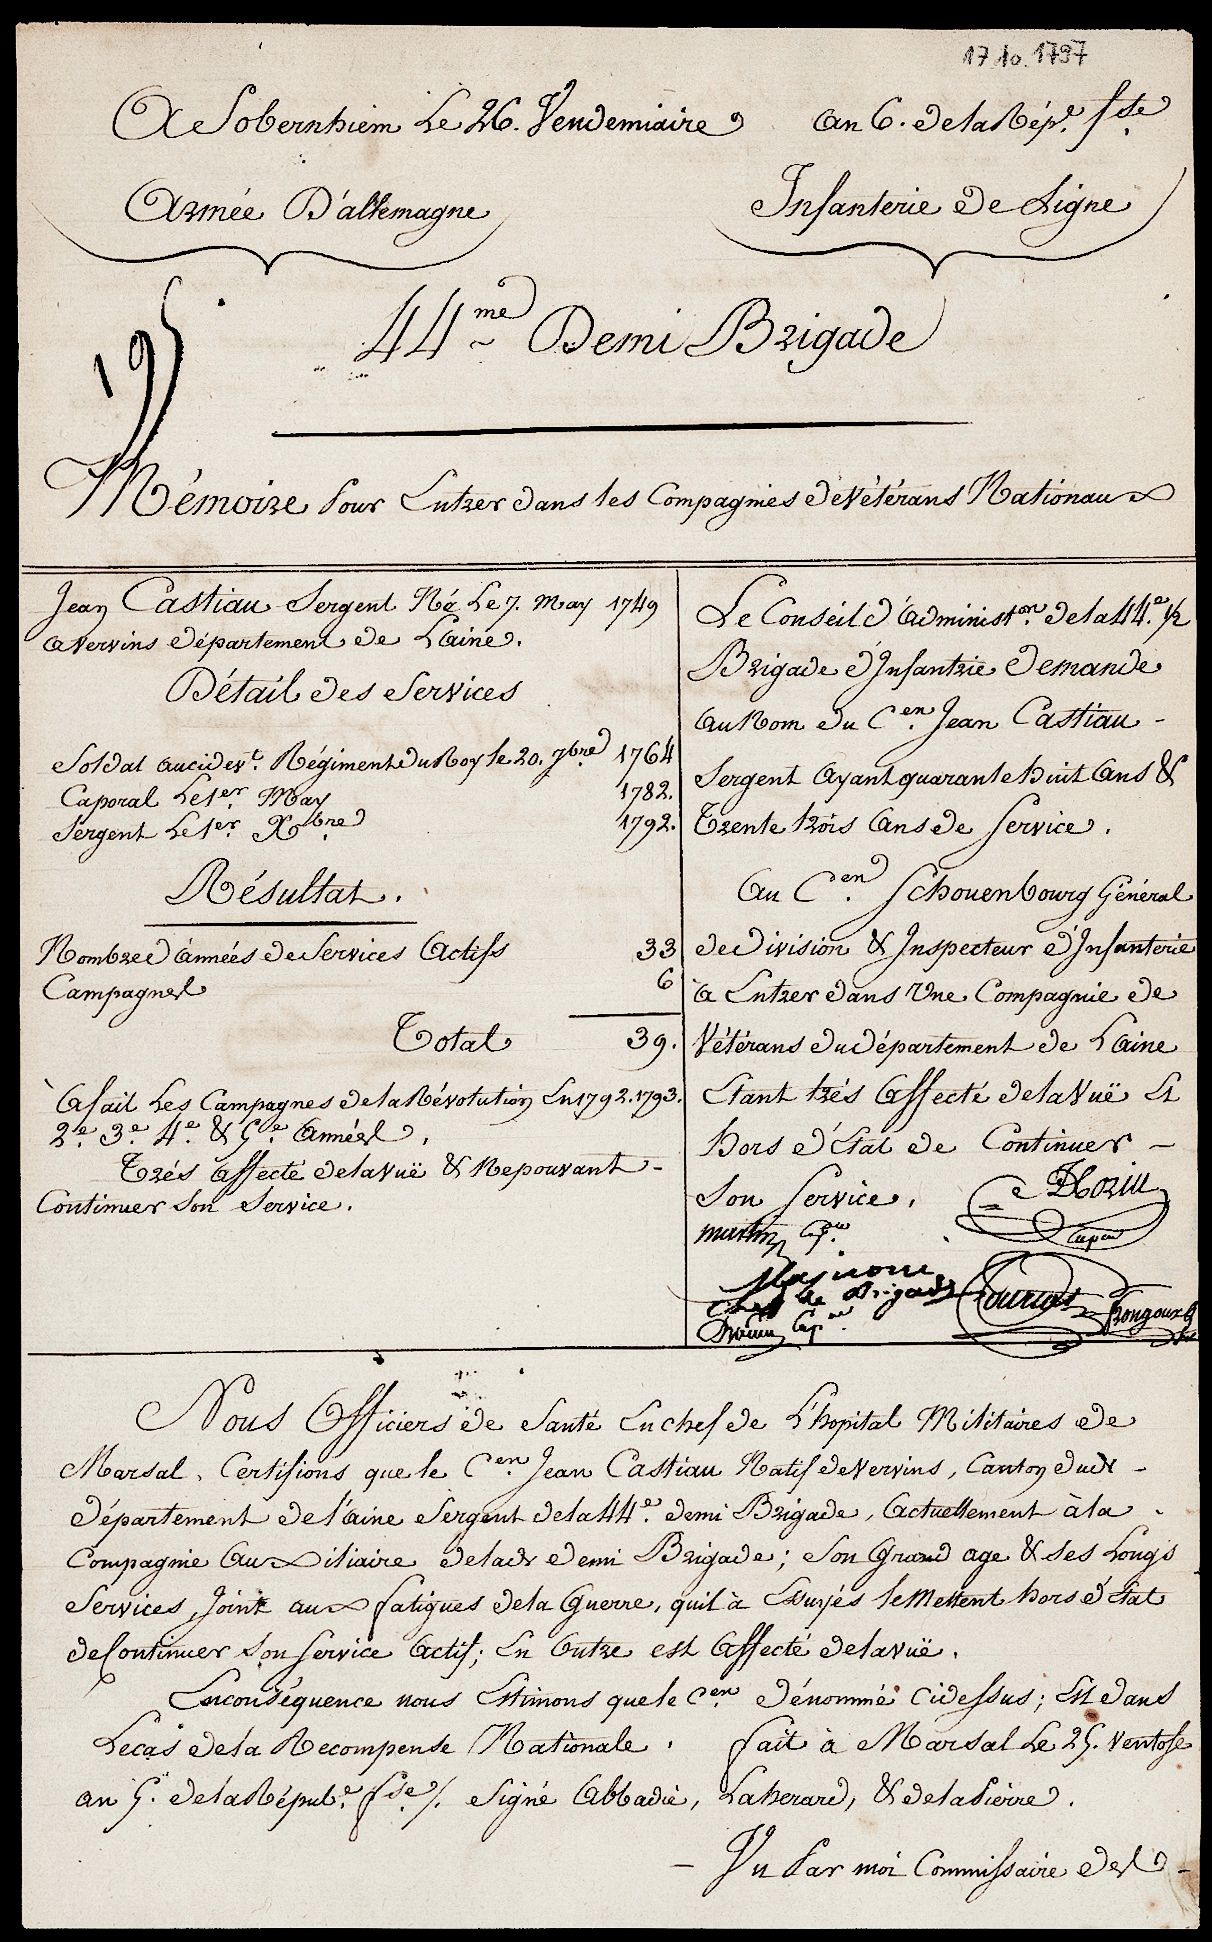 17.10.1797
A Sobernhiem Le 26. Vendemiaire an 6. de la Rép.e fse
Armée D'allemagne Infanterie de Ligne
44me Demi Brigade
195
Mémoire Pour Entrer dans les Compagnies de Vétérans Nationaux
Jean Castiau Sergent Né Le 7. May 1749
a vervins département de Laine.
Détail des Services
Soldat au cidevt. Régiment du Roy le 20. 7bre 1764
Caporal Le 1er May 1782.
Sergent Le 1er Xbre 1792.
Résultat.
Nombre d'années de Services Actifs 33
Campagnes 6
Total 39.
à fait Les Campagnes de la Révolution En 1792. 1793.
2e. 3e. 4e. & 5e. Années,
Trés affecté de la Vuë & Ne pouvant -
Continuer Son Service.
Le Conseil d'administon. de la 44.e ½
Brigade d'Infantrie demande
au Nom du Cen. Jean Castiau -
Sergent ayant quarante huit ans &
Trente trois ans de Service.
au Cen. Schouenbourg Général
de division & Inspecteur d'Infanterie
à Entrer dans Une Compagnie de
Vétérans du département de Laine
Etant trés affecté de la Vuë Et
hors d'Etat de Continuer -
Son Service.
martin Cape
chef de Brigade
Nous Officiers de Santé En chef de L'hopital Militaires de
Marsal, Certifions que le Cen. Jean Castiau Natif de Vervins, Canton dudt -
département de l'aine Sergent de la 44e. demi Brigade, actuellement à la
Compagnie auxiliaire de ladte demi Brigade; Son Grand age & ses Longs
Services, Joint aux fatigues de la Guerre, quil à Essuyés le Mettent hors d'Etat
de Continuer Son Service Actif; En Outre est affecté de la vuë.
En conséquence nous Estimons que le Cen dénommé cidessus; Est dans
Le cas de la Recompense Nationale. fait à Marsal Le 25. ventose
an 5. de la Répube. fse/. Signé Abbadie, Laherard, & de la Pierre.
- Vu Par moi Commissaire des -